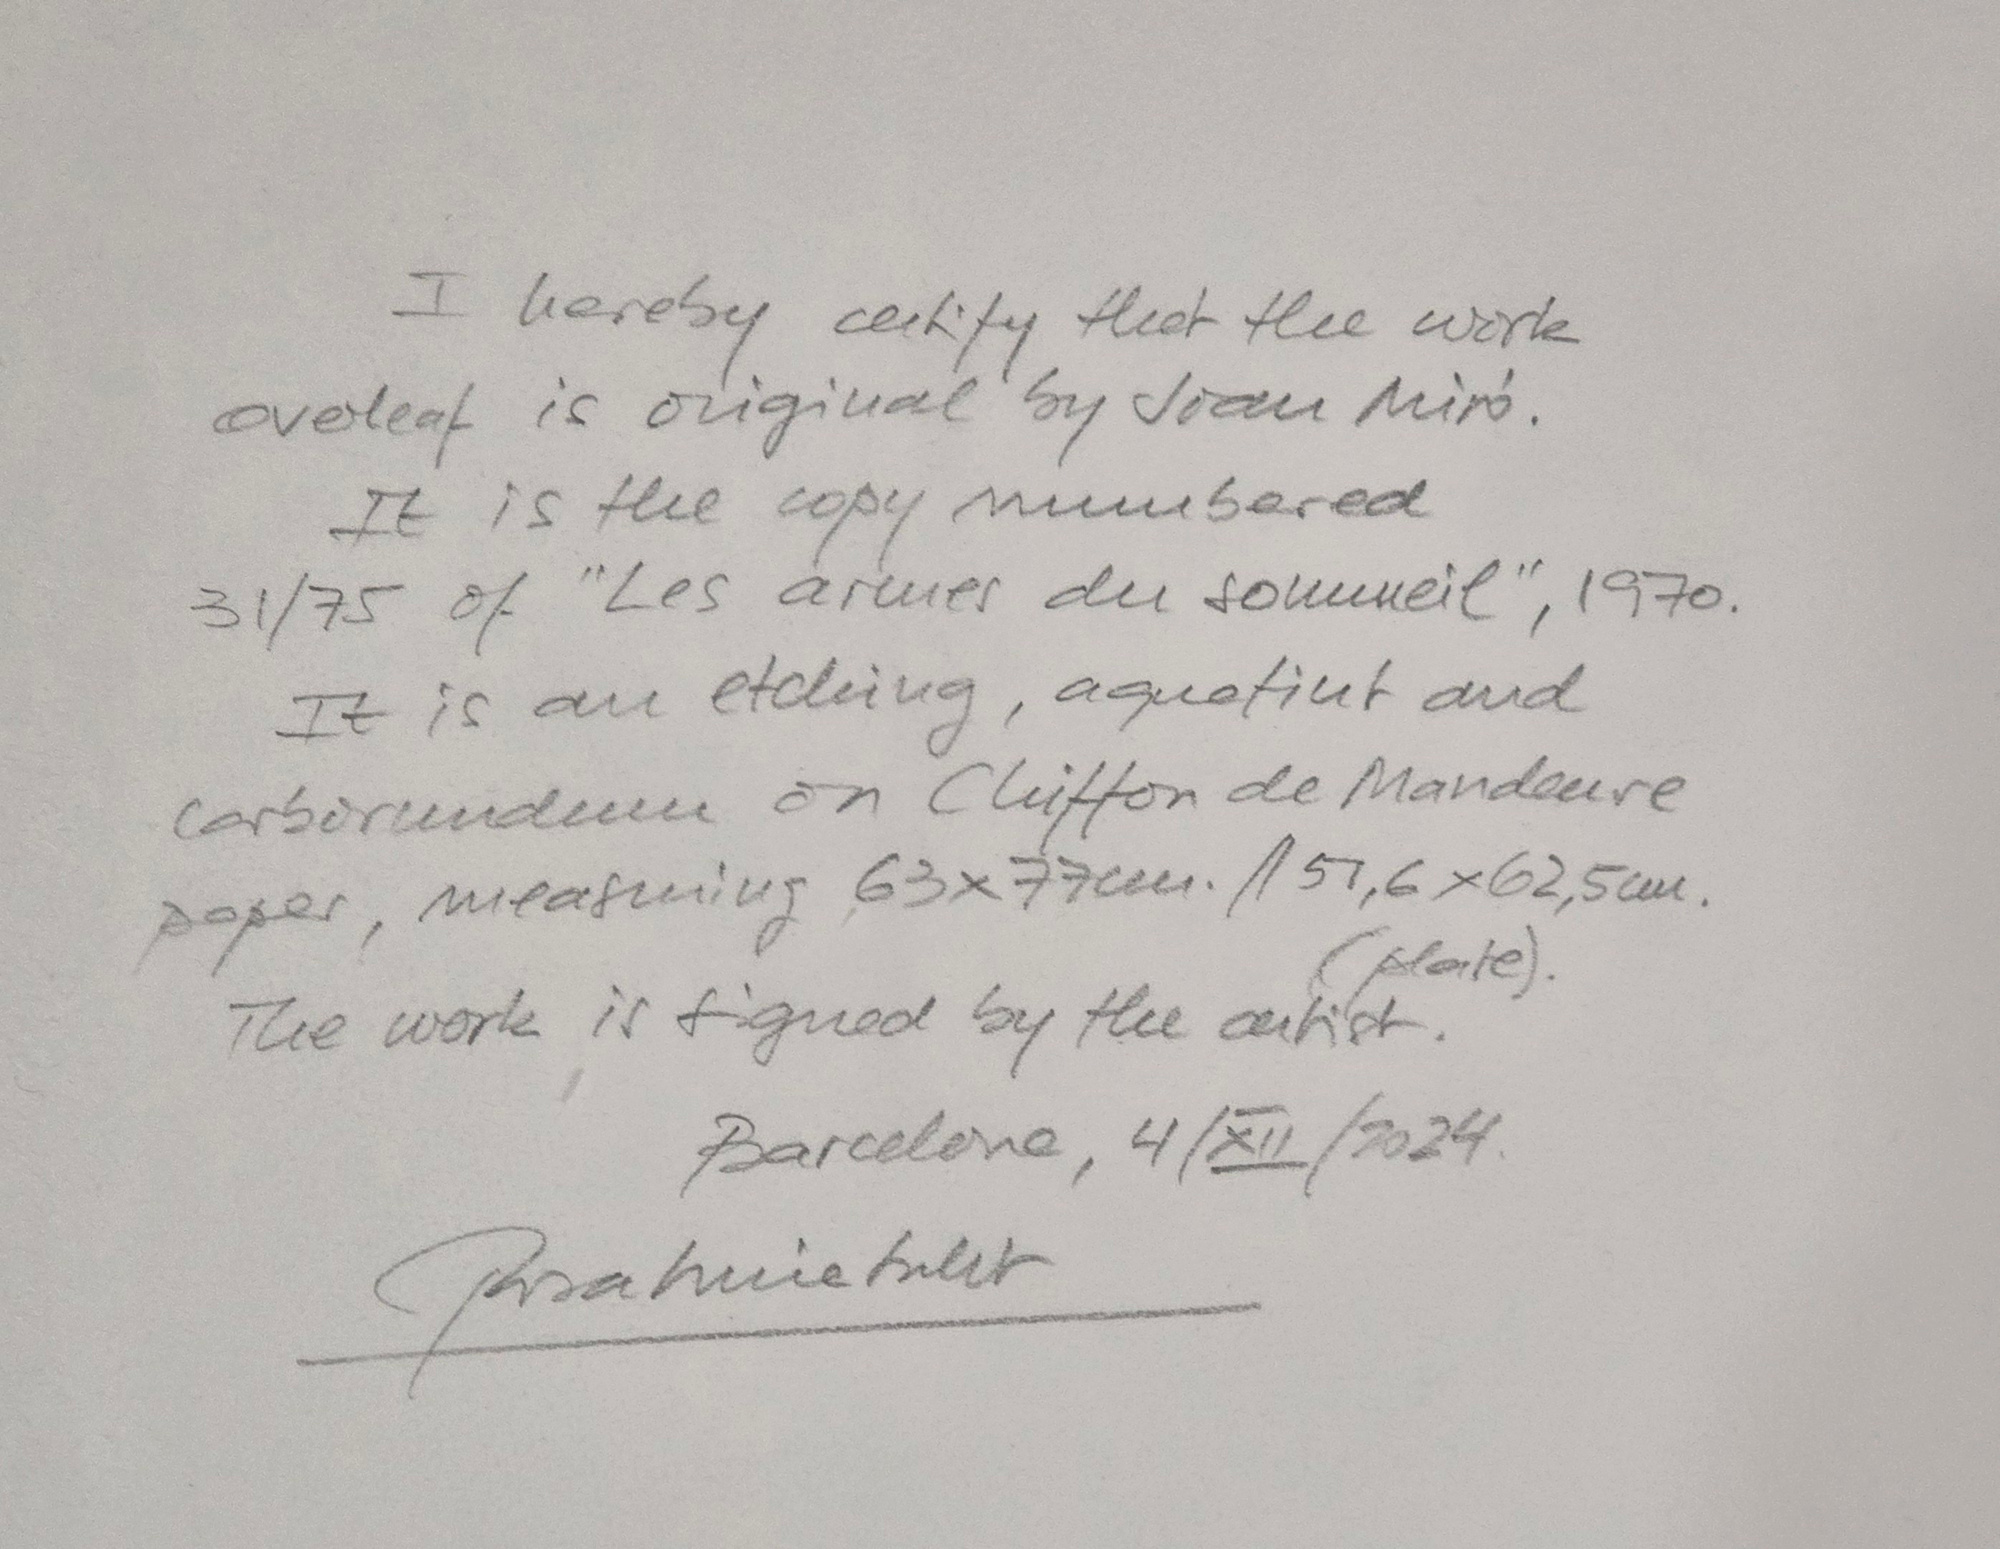 I hereby certify that the work
overleaf is original by Joan Miró.
It is the copy numbered
31/75 of "Les armes du sommeil", 1970.
It is an etching, aquatint and
carborundum on Chiffon de Mandeure
paper, measuring 63x77cm. / 51,6x62,5cm.
(plate).
The work is signed by the artist.
Barcelona, 4/XII/2024.